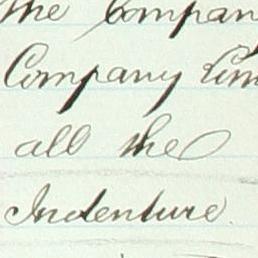 the Compan
Company Lim
all the
Indenture